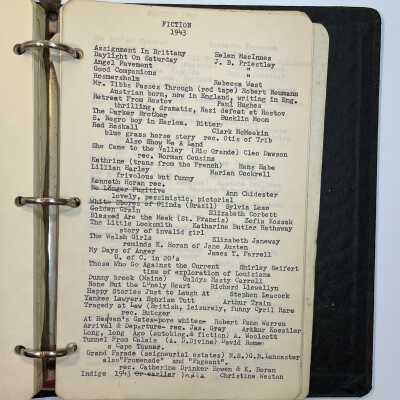 FICTION
1943
Assignment In Brittany Helen MacInnes
Daylight On Saturday J. B. Priestley
Angel Pavement "
Good Companions "
Rosmersholm Rebecca West
Mr. Tibbs Passes Through (red tape) Robert Neumann
Austrian born, now in England, writing in Eng.
Retreat From Rostov Paul Hughes
thrilling, dramatic, Nazi defeat at Rostov
The Darker Brother Bucklin Moon
S. Negro boy in Harlem. Bitter
Red Raskall Clark McMeekin
blue grass horse story rec. Otis of Trib
Also Show Me A Land
She Came to the Valley (Rio Grande) Cleo Dawson
rec. Norman Cousins
Kathrine (trans from the French) Hans Habe
Lillian Harley Marian Cockrell
frivolous but funny
Kenneth Horan rec.
No Longer Fugitive Ann Chidester
lovely, pessimistic, pictorial
White Shores of Olinda (Brazil) Sylvia Leao
Golden Grain Elizabeth Corbett
Blessed Are the Meek (St. Francis) Zofia Kossak
The Little Locksmith Katharine Butler Hathaway
story of invalid girl
The Walsh Girls Elizabeth Janeway
reminds K. Horan of Jane Austen
My Days of Anger James T. Farrell
U. of C. in 20's
Those Who Go Against the Current Shirley Seifert
time of exploration of Louisiana
Dunny Brook (Maine) Gladys Hasty Carroll
None But the Lonely Heart Richard Llewellyn
Happy Stories Just to Laugh At Stephen Leacock
Yankee Lawyer Ephriam Tutt Arthur Train
Tragedy at Law (British, leisurely, funny Cyril Hare
rec. Butcger
At Heaven's Gates-poor whites- Robert Penn Warren
Arrival & Departure- rec. Jas. Gray Arthur Koestler
Long, long Ago (autobiog.& fiction) A. Woolcott
Tunnel From Calais (A. D. Divine) David Rame
a Cape Towner.
Grand Parade (seigneurial estates) G.B.Lancaster
also "Promenade" and "Pageant".
rec. Catherine Drinker Bowen & K. Horan
Indigo 1943 Or earlier India Christine Weston